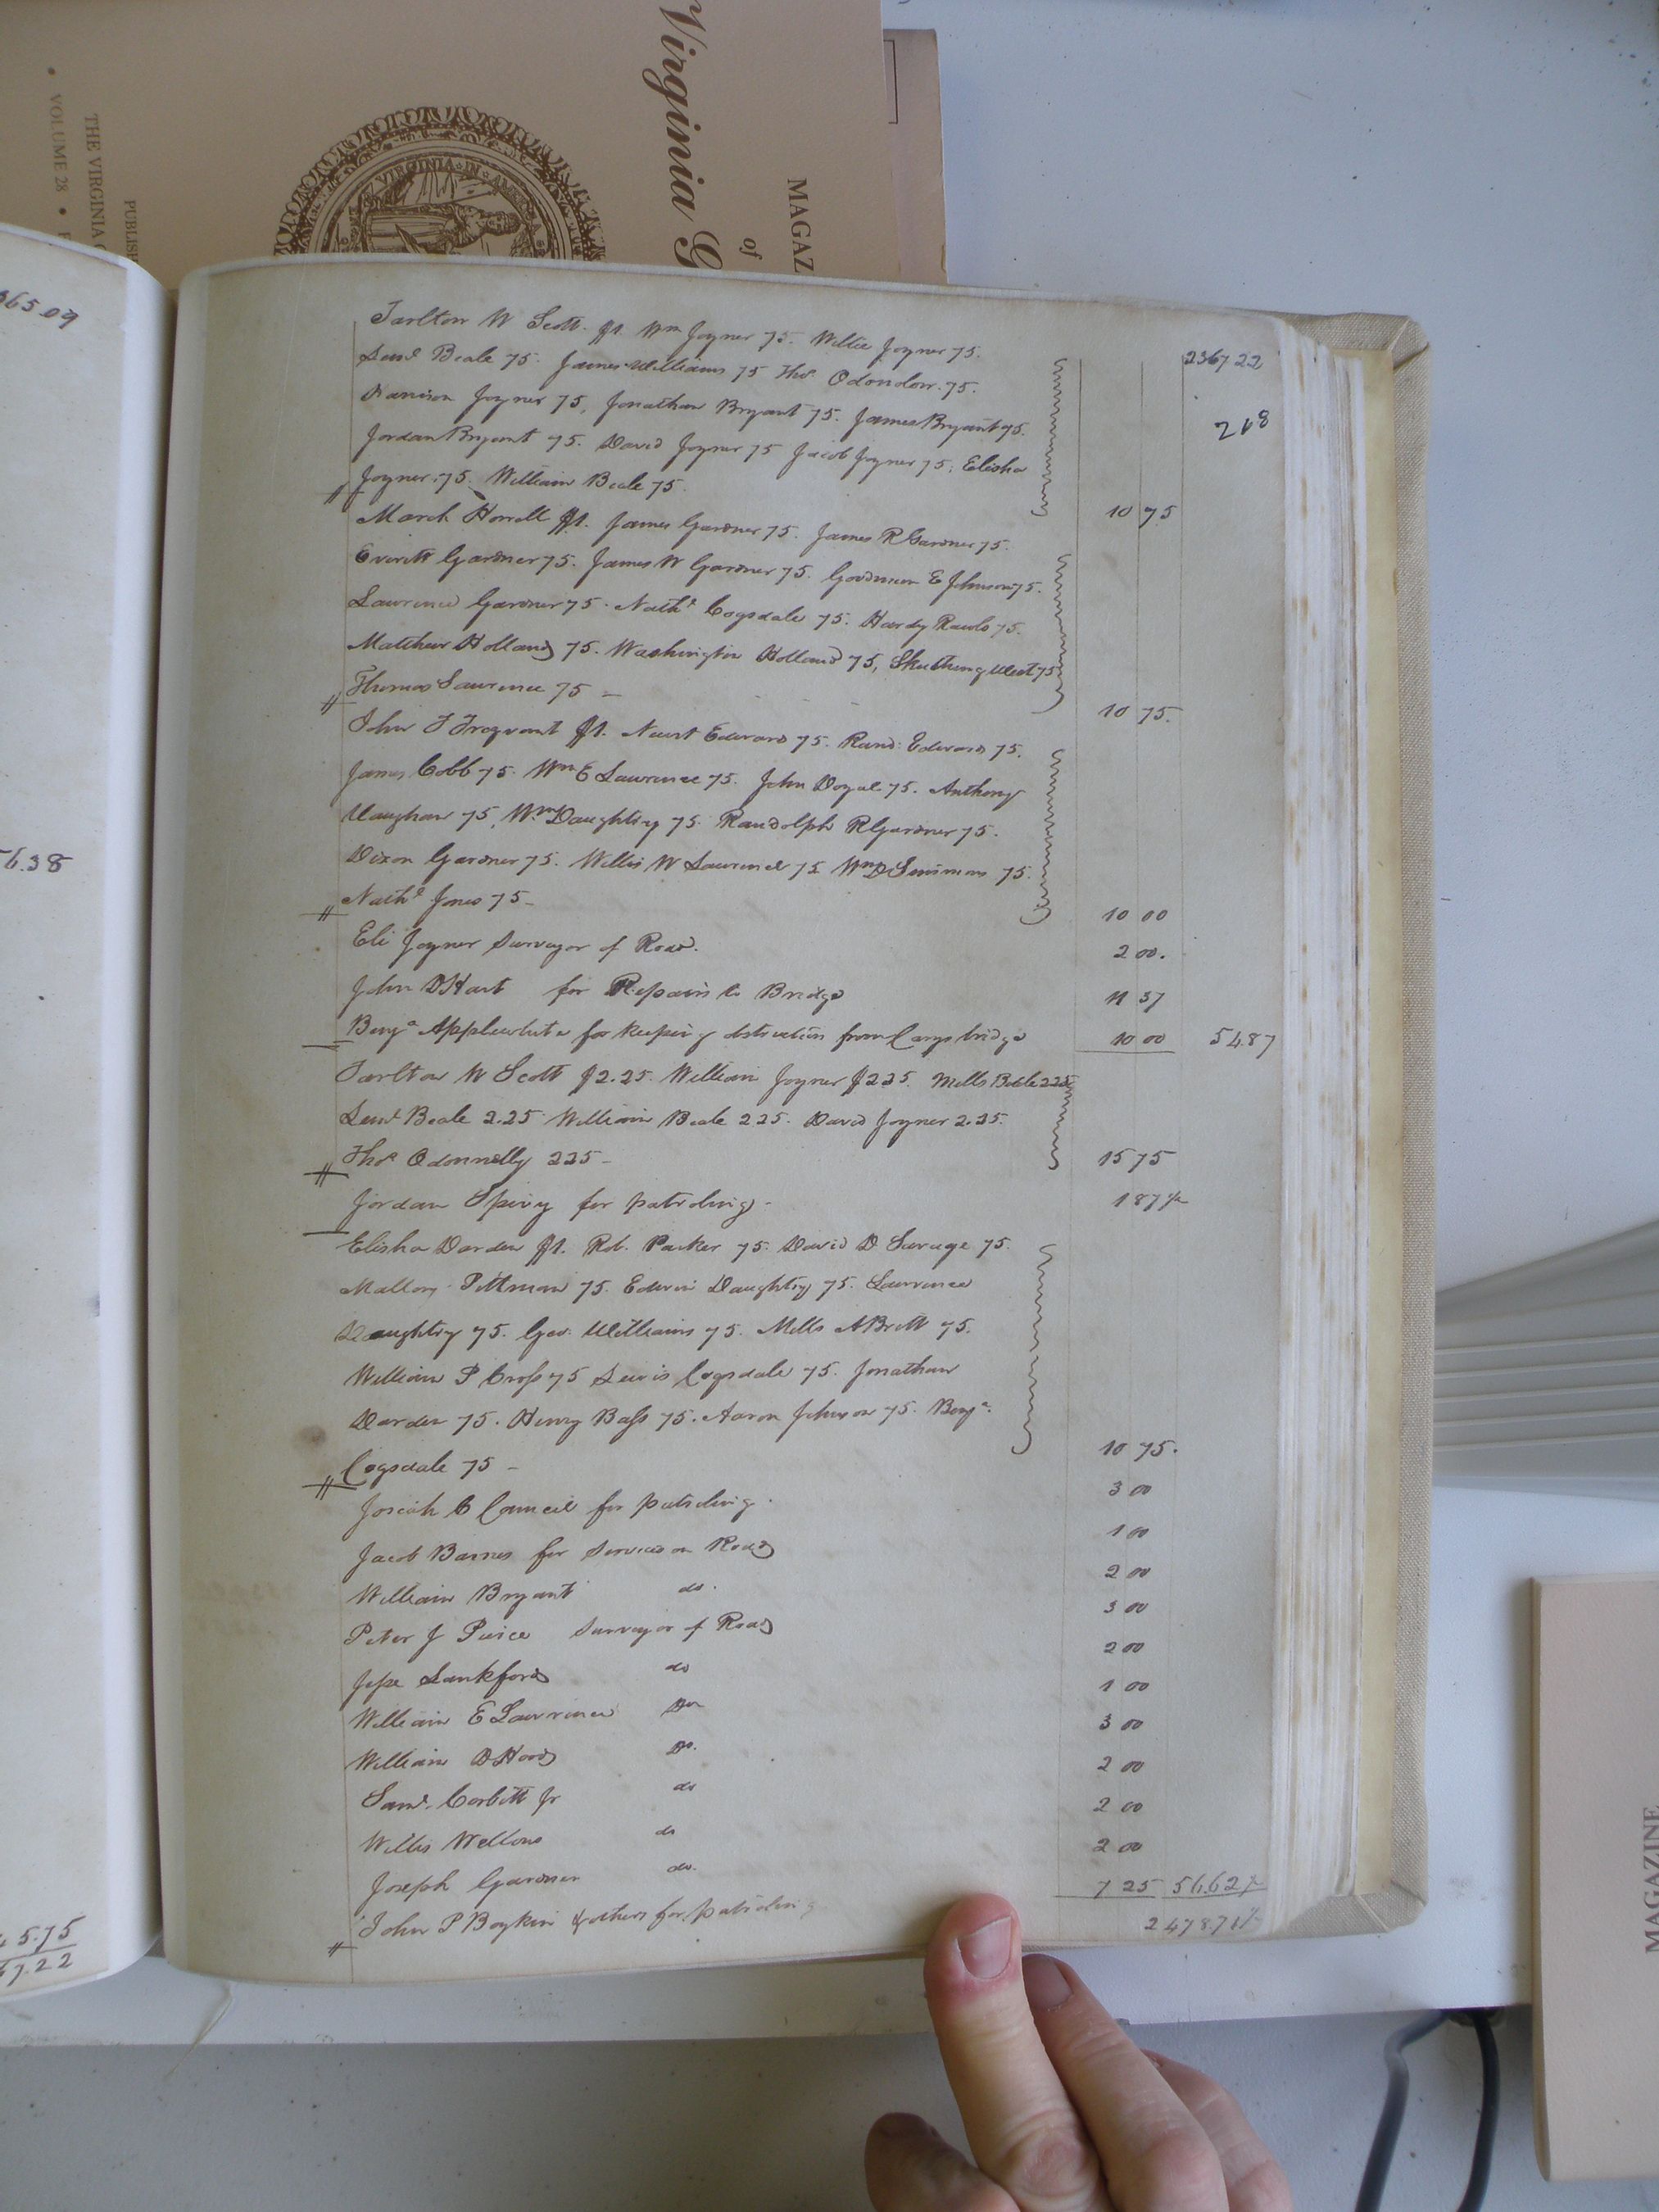 Virginia G
MAGAZ
of
PUBLISH
THE VIRGINIA G
• VOLUME 28 •
VIRGINIA IN AME
365.09
6.38
45.75
67.22
Tarlton W Scott $1. Wm Joyner 75. Willie Joyner 75. 2367 22
Saml Beale 75. James Williams 75 Thos Odonolow. 75.
Joyner 75, Jonathan Bryant 75. James Bryant 75. 218
Jordan Bryant 75. David Joyner 75 Jacob Joyner 75. Elisha
Joyner 75. William Beale 75. 10 75
March Howell $1. James Gardner 75. James R Gardner 75.
Everitt Gardner 75. James W Gardner 75. Goodman E Johnson 75.
Lawrence Gardner 75. Nathl Cogsdale 75. Hardy Rawls 75.
Matthew Holland 75. Washington Holland 75, West 75
Thomas Lawrence 75 — 10 75.
John T Trezvant $1. Newit Edwards 75. Rand: Edwards 75.
James Cobb 75. Wm E Lawrence 75. John Doyal 75. Anthony
Vaughan 75, Wm Daughtry 75. Randolph R Gardner 75.
Dixon Gardner 75. Willis W Lawrence 75 Wm D Simmons 75.
Nathl Jones 75 — 10 00
Eli Joyner Surveyor of Road. 2 00.
John D Hart for Repairs to Bridge 11 37
Benja Applewhite for keeping obstructions from Carys bridge 10 00 54.87
Tarlton W Scott $2.25. William Joyner $2.25. Mills Beale 225
Saml Beale 2.25 William Beale 225. David Joyner 2.25.
Thos Odonnelly 225 — 15 75
Jordan Spivy for patroling. 1 87 ½
Elisha Darden $1. Ro. Parker 75. David D Savage 75.
Mallory Pittman 75. Edwin Daughtry 75. Lawrence
Daughtry 75. Geo: Williams 75. Mills A Britt 75.
William P Cross 75 Lewis Cogsdale 75. Jonathan
Darden 75. Henry Bass 75. Aaron Johnson 75. Benja.
Cogsdale 75 — 10 75.
Josiah C Council for patroling. 3 00
Jacob Barnes for Services on Road 1 00
William Bryant do. 2 00
Peter J Peirce Surveyor of Road 3 00
Jesse Lankford do 2 00
William E Lawrence Do 1 00
William D Hood Do. 3 00
Saml. Corbitt Jr do 2 00
Willis Wellons do 2 00
Joseph Gardner do. 2 00
John P Boykin & others for patroling 7 25 56.62½
2478.71½
MAGAZINE